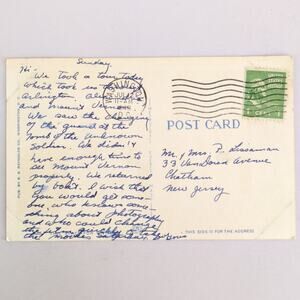 Sunday
Hi -
We took a tour today
which took us to
Arlington, Alex
and Mount Vernon
We saw the changing
of the guard at the
tomb of the Unknown
Soldier. We didn't
have enough time to
see Mount Vernon
properly. We returned
by boat. I wish that
you would get some-
one who knows some-
thing about photography
and who could change
the film quickly to take
the movies
WASHINGTON
JUL
11-AM
D.C.
1 CENT 1
POST CARD
Mr. & Mrs. P. Lissaman
33 Van Doren Avenue
Chatham
New Jersey
THIS SIDE IS FOR THE ADDRESS
PUB. BY B. S. REYNOLDS CO., WASHINGTON